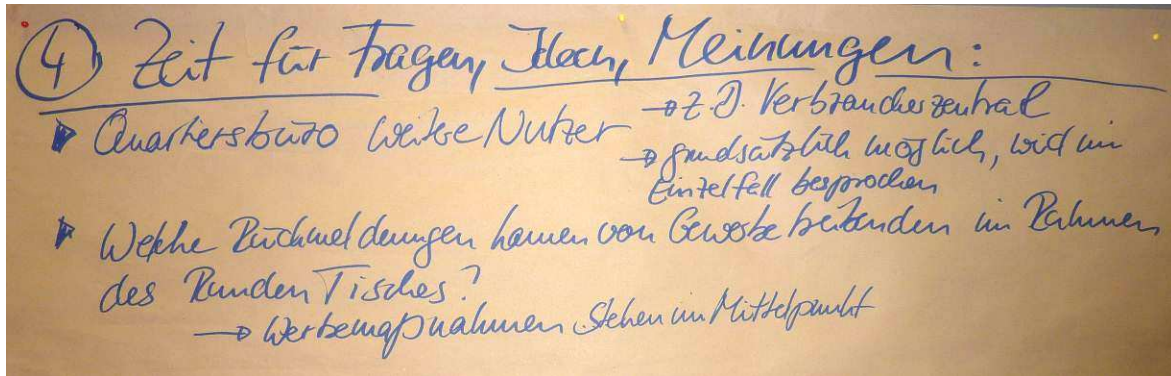 ④ Zeit für Fragen, Ideen, Meinungen:
▶ Quartiersbüro weitere Nutzer → z.B. Verbraucherzentral
→ grundsätzlich möglich, wird im
Einzelfall besprochen
▶ Welche Rückmeldungen kamen von Gewerbetreibenden im Rahmen
des Runden Tisches?
→ Werbemaßnahmen stehen im Mittelpunkt